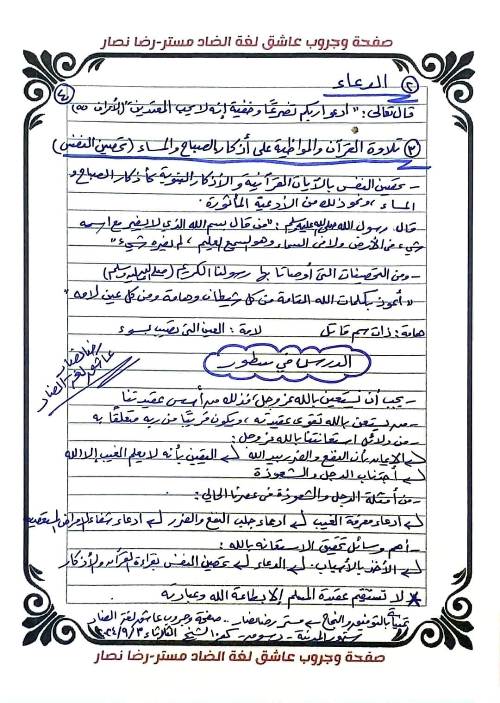 صفحة وجروب عاشق لغة الضاد مستر-رضا نصار
٤
② الدعاء
قال تعالى: "ادعوا ربكم تضرعًا وخفية إنه لا يحب المعتدين" (الأعراف ٥٥)
③ تلاوة القرآن والمواظبة على أذكار الصباح والمساء (تحصين النفس)
- تحصين النفس بالآيات القرآنية والأذكار النبوية كأذكار الصباح و
المساء، ونحو ذلك من الأدعية المأثورة.
قال رسول الله صلى الله عليه وسلم: "من قال بسم الله الذي لا يضر مع اسمه
شيء في الأرض ولا في السماء وهو السميع العليم، لم يضره شيء"
- ومن التحصينات التي أوصانا بها رسولنا الكريم (صلى الله عليه وسلم)
"أعوذ بكلمات الله التامة من كل شيطان وهامة ومن كل عين لامة"
هامة: ذات سم قاتل لامة: العين التي تصيب بسوء
الدرس في سطور
رضا نصار
عاشق لغة الضاد
- يجب أن نستعين بالله عز وجل، فذلك من أسس عقيدتنا
- من يستعن بالله تقوى عقيدته، ويكون قريبًا من ربه متعلقًا به
- من دلائل استعانتنا بالله عز وجل:
الإيمان بأن النفع والضرر بيد الله اليقين بأنه لا يعلم الغيب إلا الله
اجتناب الدجل والشعوذة
- من أمثلة الدجل والشعوذة في عصرنا الحالي:
ادعاء معرفة الغيب ادعاء جلب النفع والضرر ادعاء شفاء الأمراض المستعصية
- أهم وسائل تحقيق الاستعانة بالله:
الأخذ بالأسباب. الدعاء تحصين النفس بقراءة القرآن والأذكار
* لا تستقيم عقيدة المسلم إلا بطاعة الله وعبادته
تمنياتي بالتوفيق والنجاح مستر رضا نصار.. صفحة وجروب عاشق لغة الضاد
دسوق - كفر الشيخ الثلاثاء ٢٠٢٤/٩/٣
صفحة وجروب عاشق لغة الضاد مستر-رضا نصار